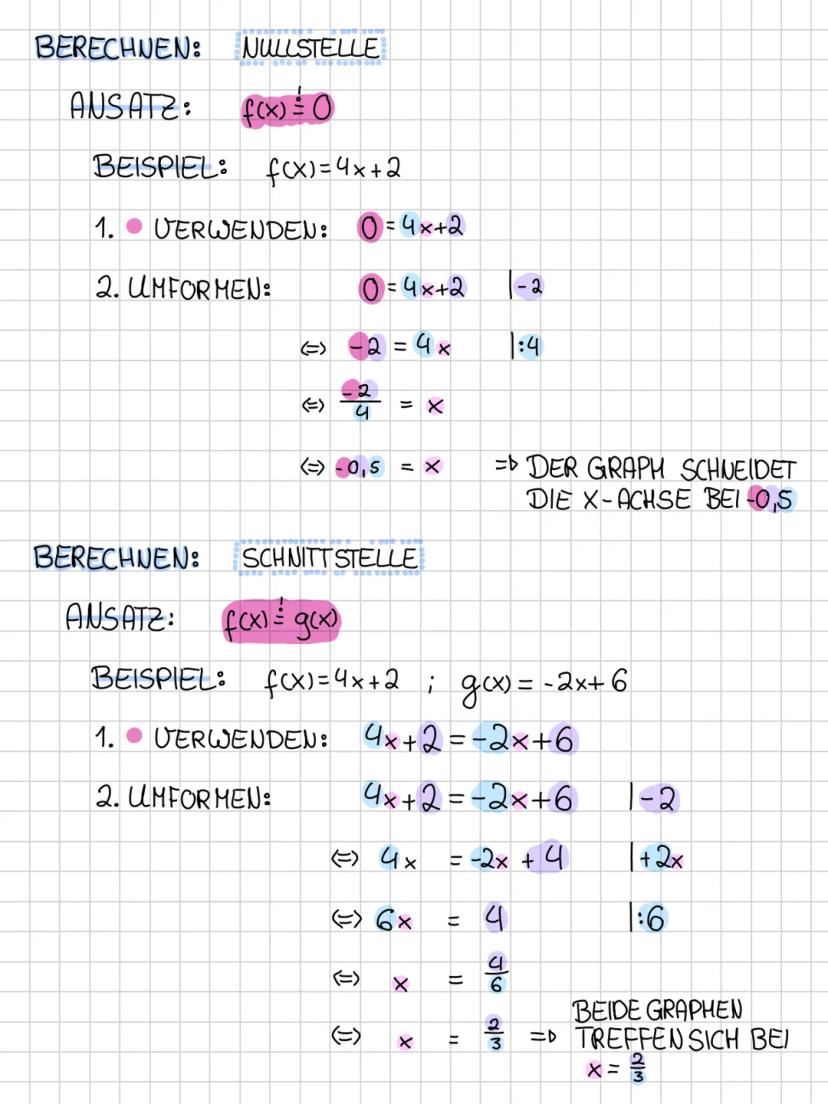 BERECHNEN: NULLSTELLE
ANSATZ: f(x) ≐ 0
BEISPIEL: f(x)=4x+2
1. VERWENDEN: 0=4x+2
2. UMFORMEN: 0=4x+2 |-2
⇔ -2 = 4x |:4
⇔ -2/4 = x
⇔ -0,5 = x ⇒ DER GRAPH SCHNEIDET
DIE X-ACHSE BEI -0,5
BERECHNEN: SCHNITTSTELLE
ANSATZ: f(x) ≐ g(x)
BEISPIEL: f(x)=4x+2 ; g(x)= -2x+6
1. VERWENDEN: 4x+2=-2x+6
2. UMFORMEN: 4x+2=-2x+6 |-2
⇔ 4x = -2x + 4 |+2x
⇔ 6x = 4 |:6
⇔ x = 4/6
⇔ x = 2/3 ⇒ BEIDE GRAPHEN
TREFFEN SICH BEI
x = 2/3